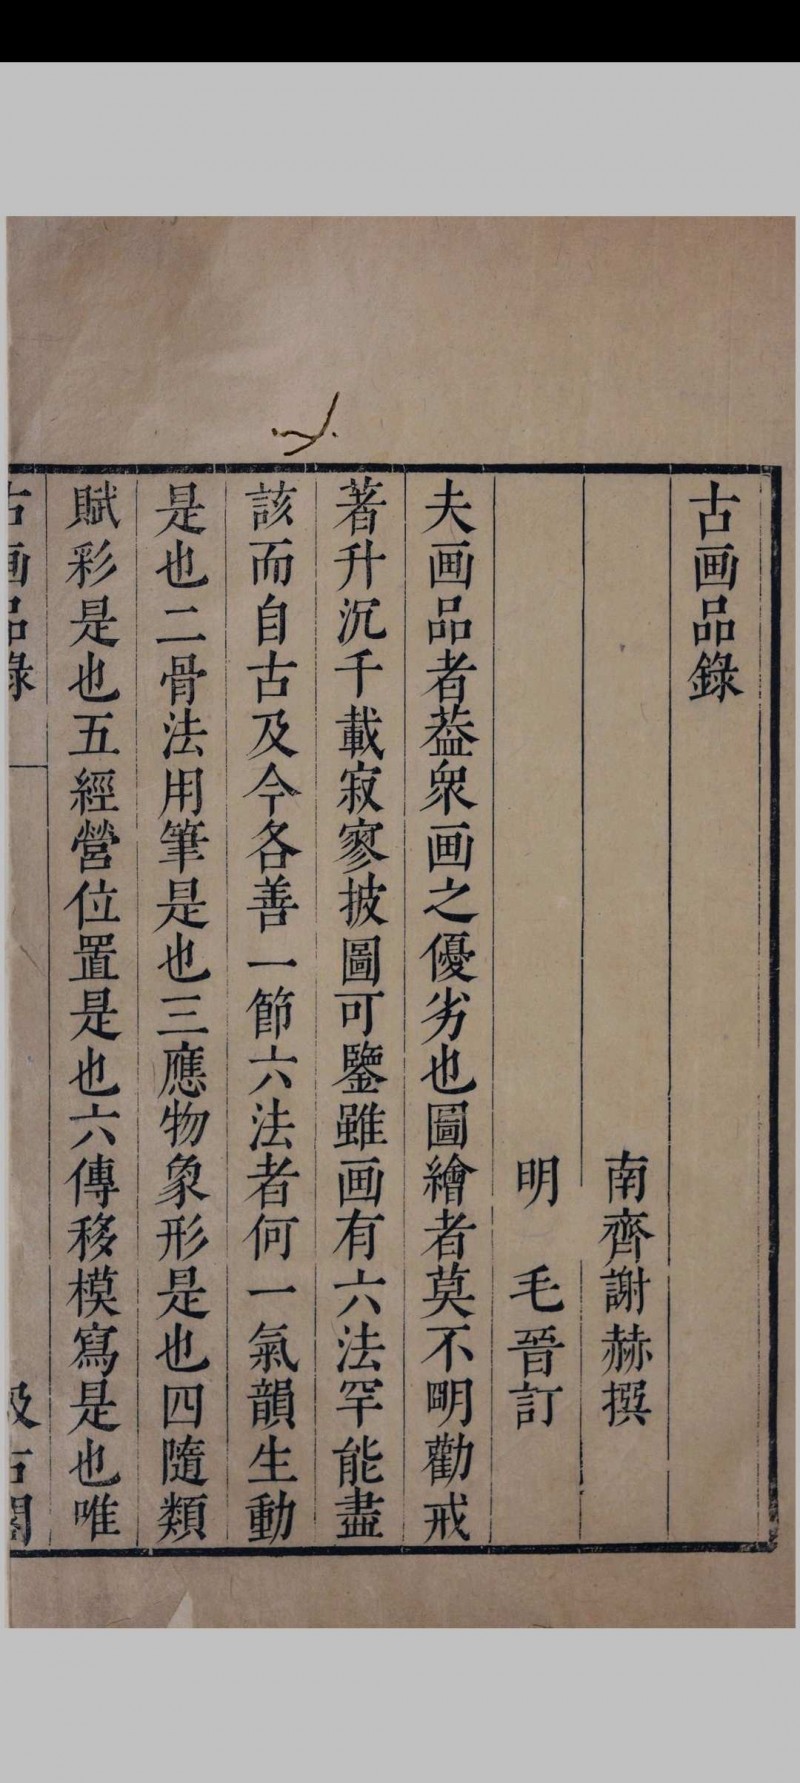 古画品錄
南齊謝赫撰
明　毛晉訂
夫画品者葢衆画之優劣也圖繪者莫不明勸戒
著升沉千載寂寥披圖可鑒雖画有六法罕能盡
該而自古及今各善一節六法者何一氣韻生動
是也二骨法用筆是也三應物象形是也四隨類
賦彩是也五經營位置是也六傳移模寫是也唯
古画品錄
汲古閣